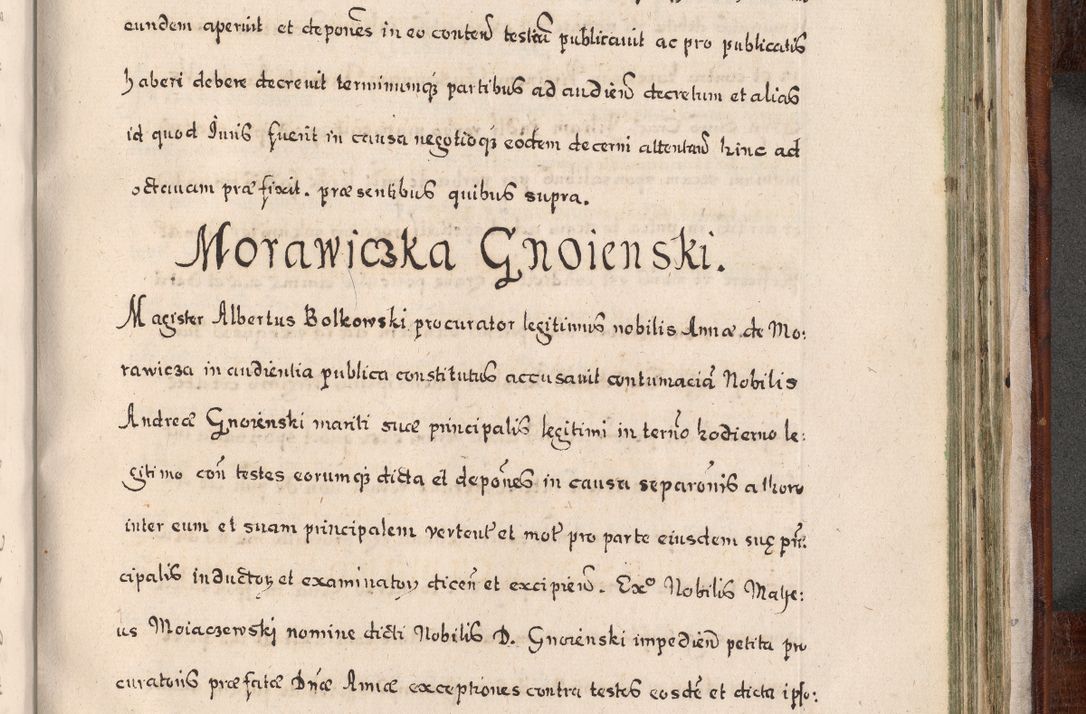 eundem aperuit et depones in eo conten testiu publicauit ac pro publicatis
haberi debere decreuit terminumq; partibus ad audien decretum et alias
id quod Juris fuerit in causa negotioq; eodem decerni attentan hinc ad
octauam præfixit. præsentibus quibus supra.
Morawiczka Gnoienski.
Magister Albertus Bolkowski procurator legitimus nobilis Annæ de Mo:
rawicza in audientia publica constitutus accusauit contumaciã Nobilis
Andreæ Gnoienski mariti suæ principalis legitimi in termo hodierno le:
gitimo con testes eorumq; dicta et depones in causa separonis a thoro
inter eum et suam principalem verten et mot pro parte eiusdem suę prin:
cipalis inductoy et examinatoy dicen et excipien. Exo Nobilis Mathe:
us Moiaczewskj nomine dicti Nobilis D. Gnoienski impedien petita pro
curatoris præfatæ Dnæ Annæ exceptiones contra testes eosde et dicta ipso: